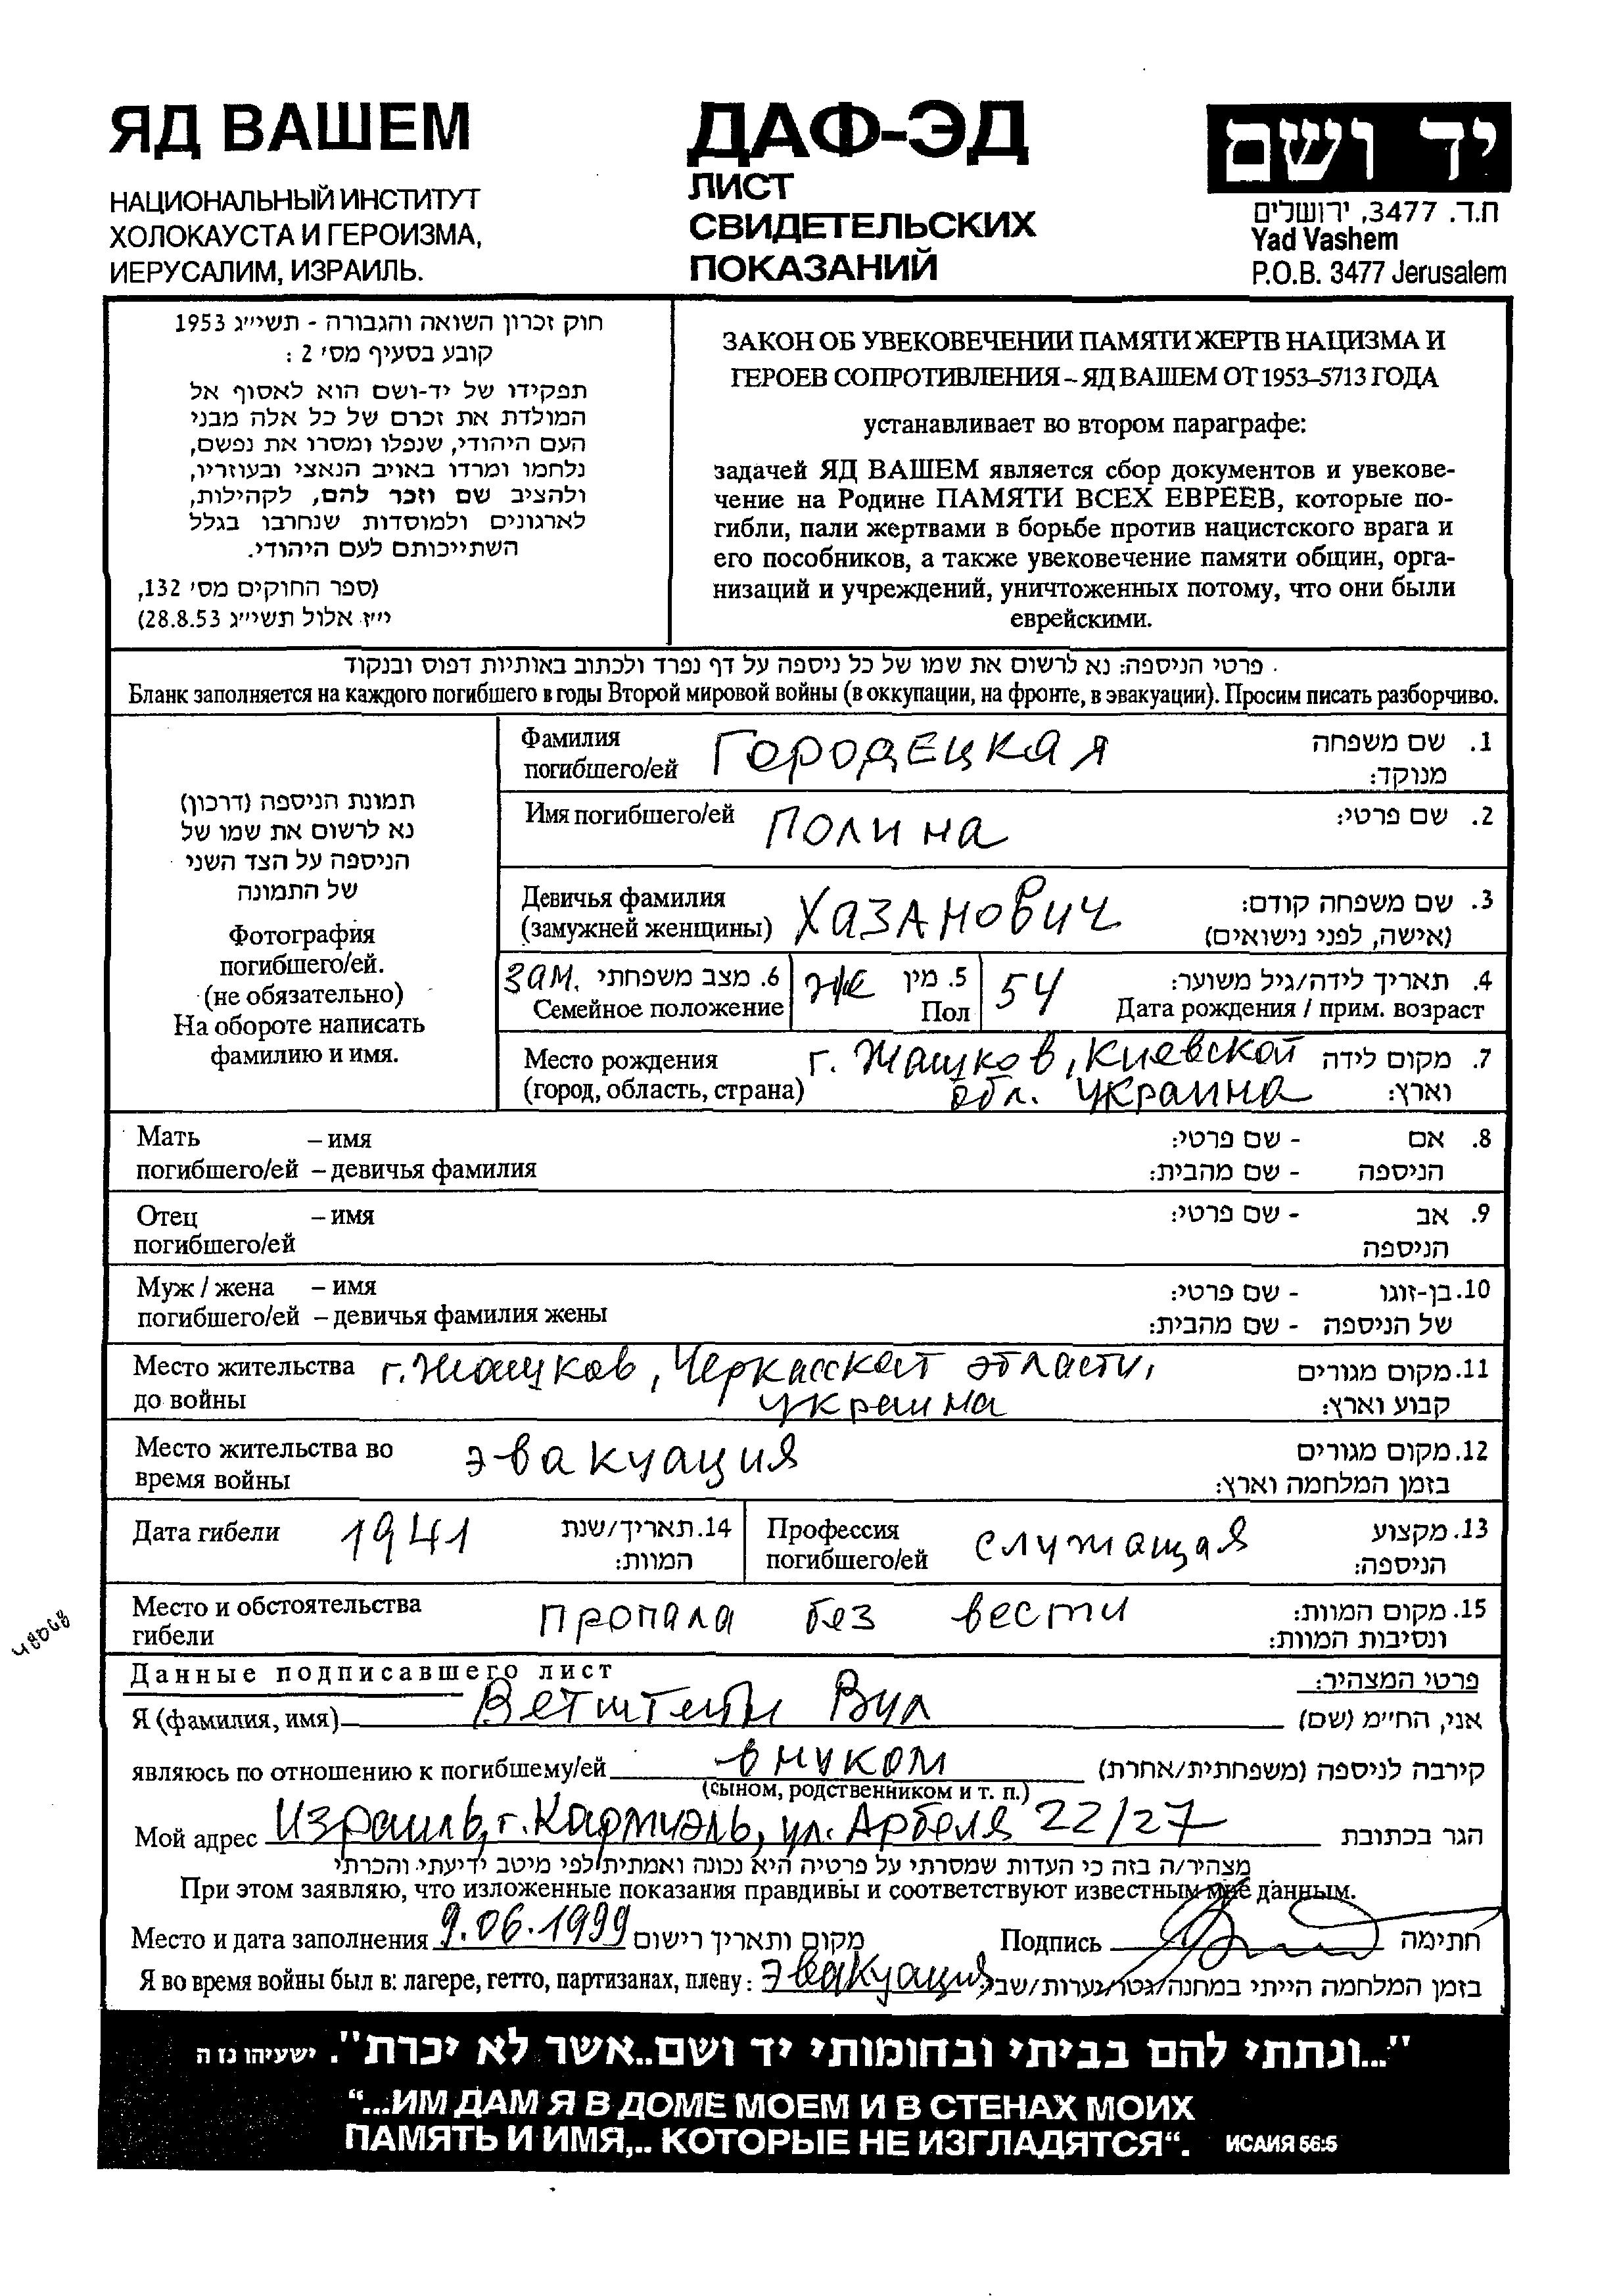 ЯД ВАШЕМ
НАЦИОНАЛЬНЫЙ ИНСТИТУТ
ХОЛОКАУСТА И ГЕРОИЗМА,
ИЕРУСАЛИМ, ИЗРАИЛЬ.
ДАФ-ЭД
ЛИСТ
СВИДЕТЕЛЬСКИХ
ПОКАЗАНИЙ
יד ושם
ת.ד. 3477, ירושלים
Yad Vashem
P.O.B. 3477 Jerusalem
חוק זכרון השואה והגבורה - תשי״ג 1953
קובע בסעיף מס׳ 2 :
תפקידו של יד-ושם הוא לאסוף אל
המולדת את זכרם של כל אלה מבני
העם היהודי, שנפלו ומסרו את נפשם,
נלחמו ומרדו באויב הנאצי ובעוזריו,
ולהציב שם וזכר להם, לקהילות,
לארגונים ולמוסדות שנחרבו בגלל
השתייכותם לעם היהודי.
(ספר החוקים מס׳ 132,
י״ז אלול תשי״ג 28.8.53)
ЗАКОН ОБ УВЕКОВЕЧЕНИИ ПАМЯТИ ЖЕРТВ НАЦИЗМА И
ГЕРОЕВ СОПРОТИВЛЕНИЯ – ЯД ВАШЕМ ОТ 1953–5713 ГОДА
устанавливает во втором параграфе:
задачей ЯД ВАШЕМ является сбор документов и увекове-
чение на Родине ПАМЯТИ ВСЕХ ЕВРЕЕВ, которые по-
гибли, пали жертвами в борьбе против нацистского врага и
его пособников, а также увековечение памяти общин, орга-
низаций и учреждений, уничтоженных потому, что они были
еврейскими.
פרטי הניספה: נא לרשום את שמו של כל ניספה על דף נפרד ולכתוב באותיות דפוס ובנקוד
Бланк заполняется на каждого погибшего в годы Второй мировой войны (в оккупации, на фронте, в эвакуации). Просим писать разборчиво.
תמונת הניספה (דרכון)
נא לרשום את שמו של
הניספה על הצד השני
של התמונה
Фотография
погибшего/ей.
(не обязательно)
На обороте написать
фамилию и имя.
Фамилия Городецкая 1. שם משפחה
погибшего/ей מנוקד:
Имя погибшего/ей Полина 2. שם פרטי:
Девичья фамилия Хазанович 3. שם משפחה קודם:
(замужней женщины) (אישה, לפני נישואים)
зам. 6. מצב משפחתי жс 5. מין 54 4. תאריך לידה/גיל משוער:
Семейное положение Пол Дата рождения / прим. возраст
Место рождения г. Жашков, Киевской 7. מקום לידה
(город, область, страна) обл. Украина וארץ:
Мать – имя 8. אם - שם פרטי:
погибшего/ей – девичья фамилия הניספה - שם מהבית:
Отец – имя 9. אב - שם פרטי:
погибшего/ей הניספה
Муж / жена – имя 10. בן-זוגו - שם פרטי:
погибшего/ей – девичья фамилия жены של הניספה - שם מהבית:
Место жительства г. Жашков, Черкасской области, 11. מקום מגורים
до войны Украина קבוע וארץ:
Место жительства во эвакуация 12. מקום מגורים
время войны בזמן המלחמה וארץ:
Дата гибели 1941 14. תאריך/שנת המוות:
Профессия служащая 13. מקצוע
погибшего/ей הניספה:
Место и обстоятельства пропала без вести 15. מקום המוות:
гибели ונסיבות המוות:
48068
Данные подписавшего лист פרטי המצהיר:
Я (фамилия, имя) Ветштейн Вил אני, הח״מ (שם)
являюсь по отношению к погибшему/ей внуком קירבה לניספה (משפחתית/אחרת)
(сыном, родственником и т. п.)
Мой адрес Израиль, г. Кармиэль, ул. Арбеля 22/27 הגר בכתובת
מצהיר/ה בזה כי העדות שמסרתי על פרטיה היא נכונה ואמתית לפי מיטב ידיעתי והכרתי
При этом заявляю, что изложенные показания правдивы и соответствуют известным мне данным.
Место и дата заполнения 9.06.1999 מקום ותאריך רישום Подпись חתימה
Я во время войны был в: лагере, гетто, партизанах, плену: эвакуация בזמן המלחמה הייתי במחנה/גטו/יערות/שבי
"...ונתתי להם בביתי ובחומותי יד ושם..אשר לא יכרת". ישעיהו נז ה
“...ИМ ДАМ Я В ДОМЕ МОЕМ И В СТЕНАХ МОИХ
ПАМЯТЬ И ИМЯ,.. КОТОРЫЕ НЕ ИЗГЛАДЯТСЯ“. ИСАИЯ 56:5